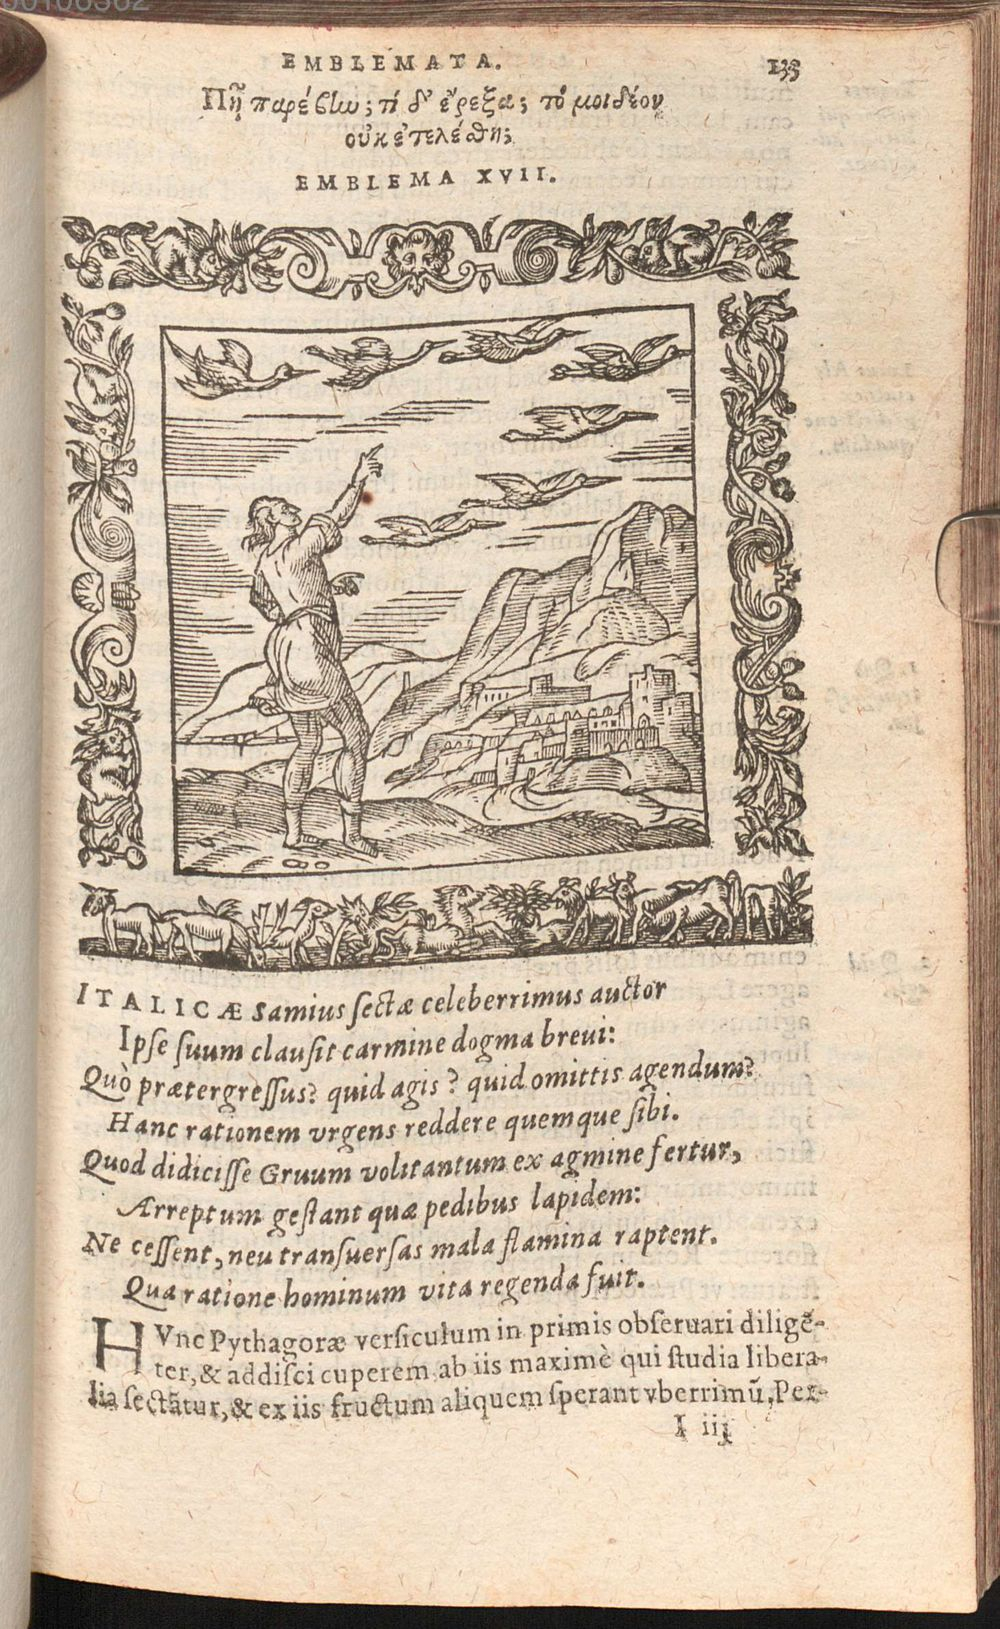 EMBLEMATA. 133
Πῆ παρέβην; τί δ' ἔρεξα; τό μοι δέον
οὐκ ἐτελέσθη;
EMBLEMA XVII.
ITALICÆ Samius ſectæ celeberrimus auctor
Ipſe ſuum clauſit carmine dogma breui:
Quò prætergreſſus? quid agis? quid omittis agendum?
Hanc rationem vrgens reddere quemque ſibi.
Quod didiciſſe Gruum volitantum ex agmine fertur,
Arreptum geſtant quæ pedibus lapidem:
Ne ceſſent, neu tranſuerſas mala flamina raptent.
Qua ratione hominum vita regenda fuit.
HVnc Pythagoræ verſiculum in primis obſeruari diligẽ-
ter, & addiſci cuperem ab iis maximè qui ſtudia libera-
lia ſectãtur, & ex iis fructum aliquem ſperant vberrimũ, Per-
I iij